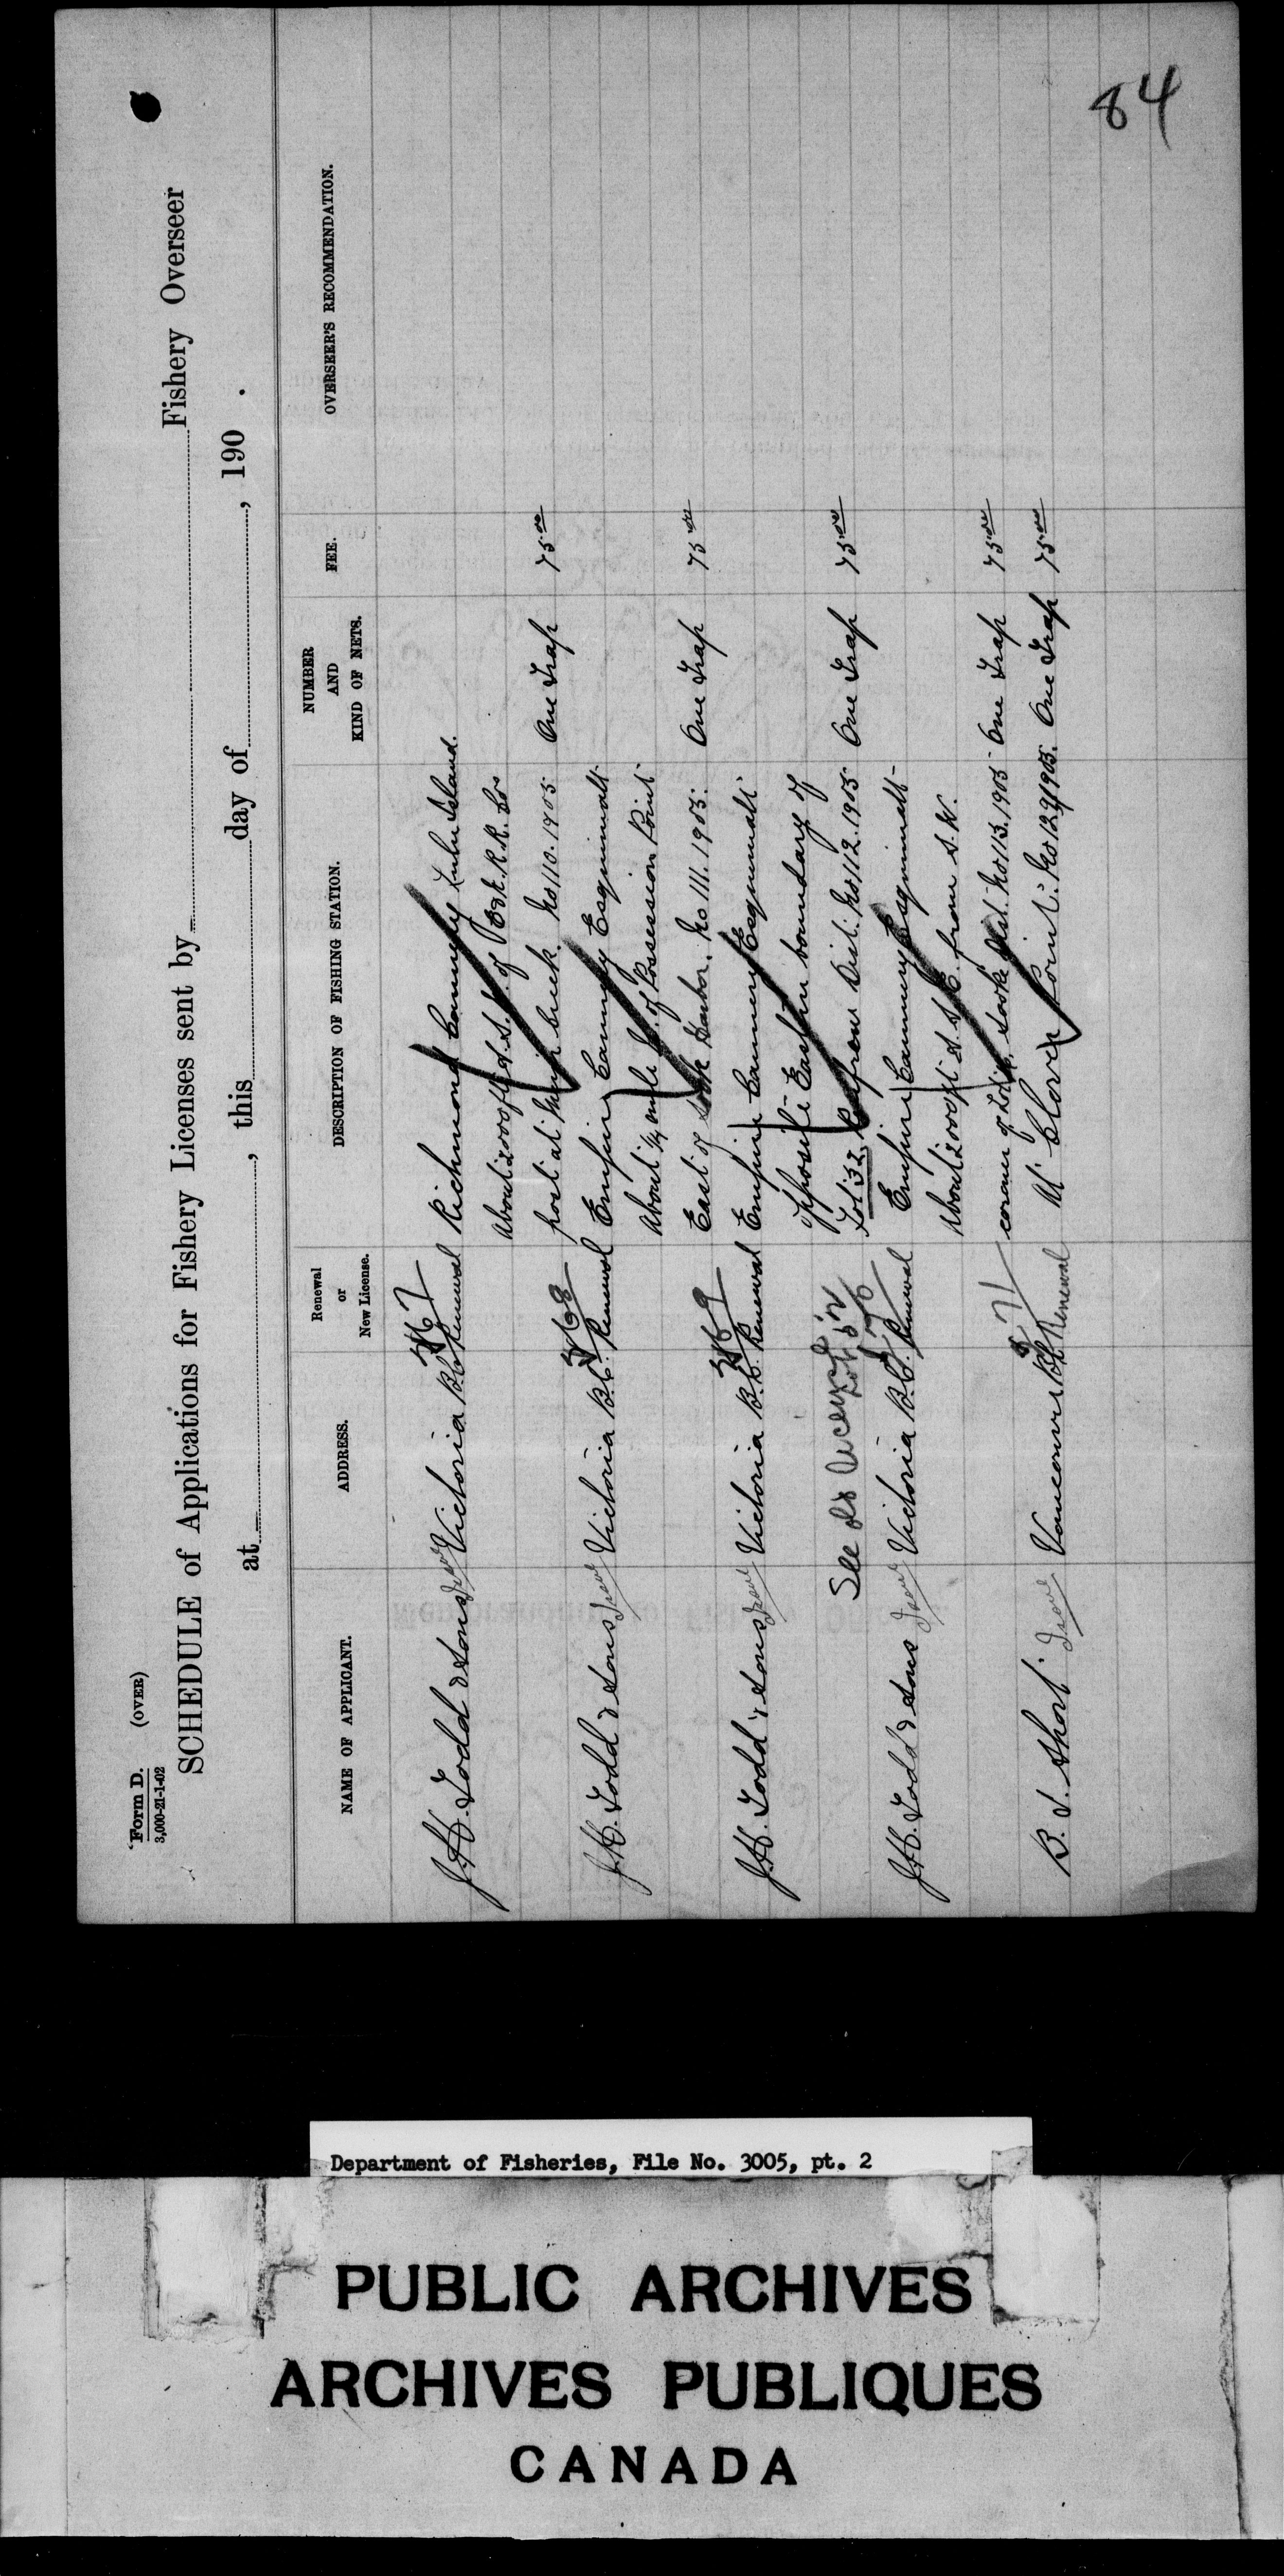 Form D. (OVER)
3,000-21-1-02
SCHEDULE of Applications for Fishery Licenses sent by Fishery Overseer
at , this day of , 190 .
NAME OF APPLICANT. ADDRESS. Renewal or New License. DESCRIPTION OF FISHING STATION. NUMBER AND KIND OF NETS. FEE. OVERSEER'S RECOMMENDATION.
J.H. Todd & Sons Victoria B.C. Renewal Richmond Cannery Lulu Island.
About 2000 ft of
post at creek. No 110. 1905. One Trap 75.00
J.H. Todd & Sons Victoria B.C. Renewal Empire Cannery Esquimalt
About 1/4 mile of Possession Point
East of Sooke Harbor. No 111. 1905. One Trap 75.00
J.H. Todd & Sons Victoria B.C. Renewal Empire Cannery Esquimalt
opposite Eastern boundary of
Lot 32, Renfrew Dist. No 112. 1905. One Trap 75.00
J.H. Todd & Sons Victoria B.C. Renewal Empire Cannery Esquimalt
About 2000 ft S.E. from S.W.
corner of Sooke Dist. No 113. 1905 One Trap 75.00
B. S. Short Vancouver B.C. Renewal At Clover Point. No 129/1905. One Trap 75.00
84
Department of Fisheries, File No. 3005, pt. 2
PUBLIC ARCHIVES
ARCHIVES PUBLIQUES
CANADA